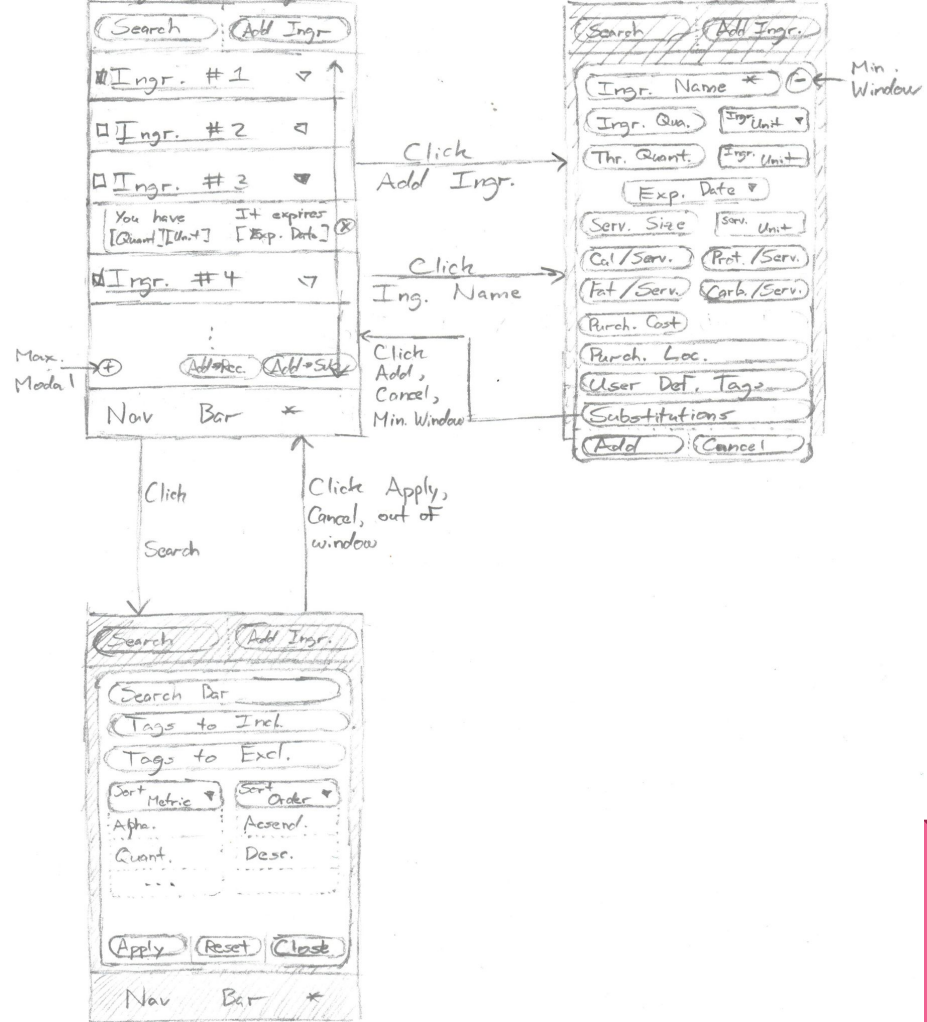 Search Add Ingr
Ingr. #1
Ingr. #2
Ingr. #3
You have It expires
[Quant][Unit] [Exp. Date]
Ingr. #4
Add→Rec. Add→Sub
Nav Bar *
Max.
Modal
Click
Add Ingr.
Click
Ing. Name
Click
Add,
Cancel,
Min. Window
Search Add Ingr.
Ingr. Name *
Ingr. Qua. Ingr. Unit
Thr. Quant. Ingr. Unit
Exp. Date
Serv. Size Serv. Unit
Cal/Serv. Prot./Serv.
Fat/Serv. Carb./Serv.
Purch. Cost
Purch. Loc.
User Def. Tags
Substitutions
Add Cancel
Min.
Window
Click
Search
Click Apply,
Cancel, out of
window
Search Add Ingr.
Search Bar
Tags to Incl.
Tags to Excl.
Sort Metric Sort Order
Alpha. Acsend.
Quant. Desc.
...
Apply Reset Close
Nav Bar *